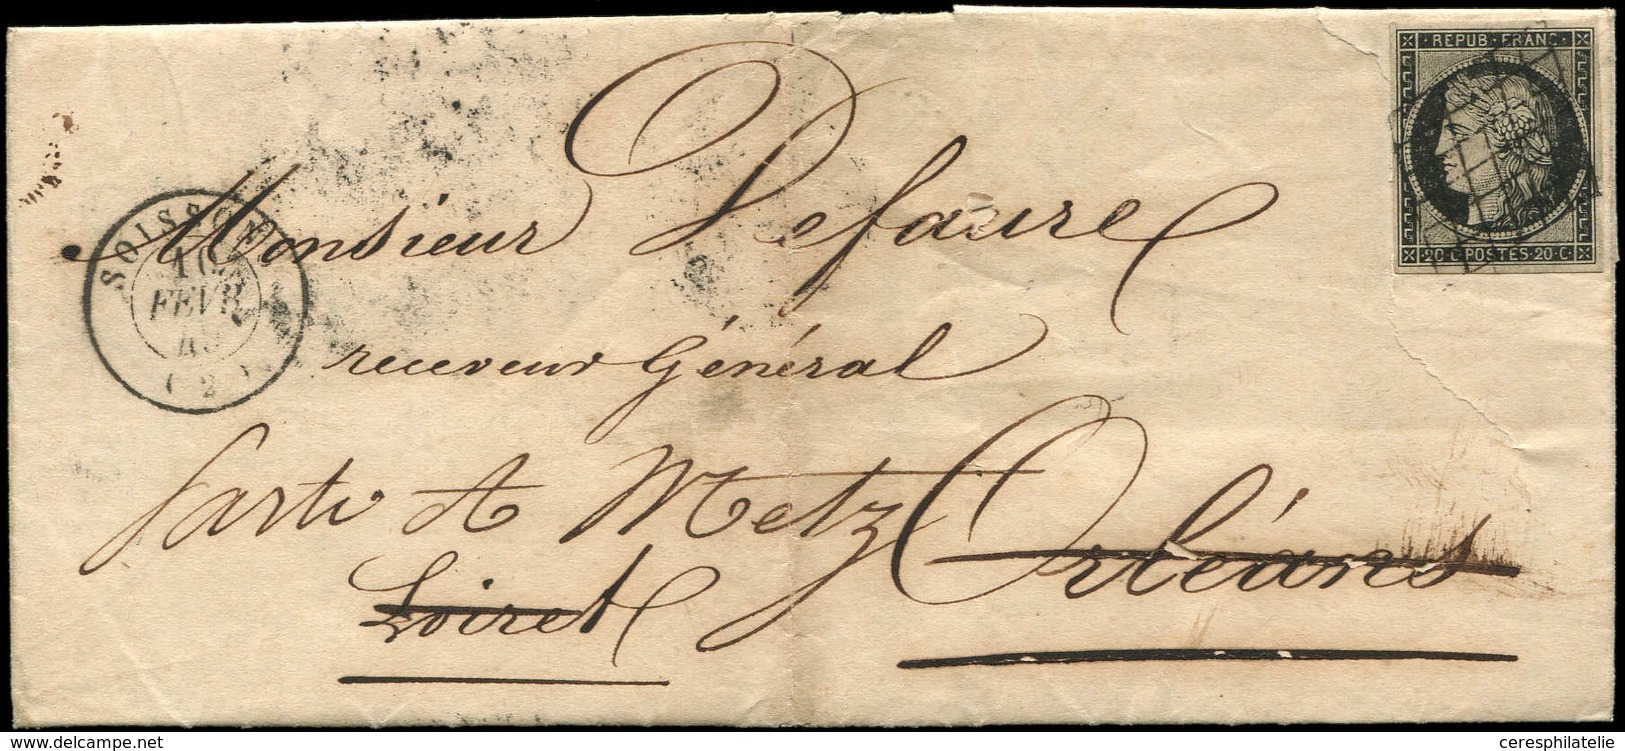 REPUB·FRANC·
20·C·POSTES·20·C·
SOISSONS
16
FEVR
49
( 2 )
Monsieur Defaure
receveur Général
parti A Metz Orléans
Loiret
delcampe.net
ceresphilatelie